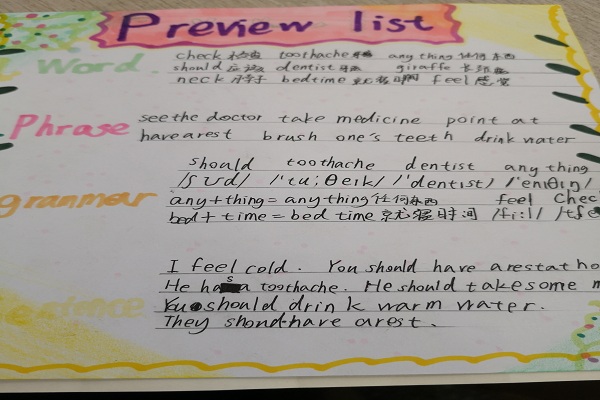 Preview list
Word
check 检查 toothache 牙痛 anything 任何东西
should 应该 dentist 牙医 giraffe 长颈鹿
neck 脖子 bedtime 就寝时间 feel 感觉
Phrase
see the doctor take medicine point at
have a rest brush one's teeth drink water
grammar
should toothache dentist anything
/ʃʊd/ /'tu:θeɪk/ /'dentist/ /'eniθiŋ/
any+thing=anything 任何东西 feel Chec
bed+time=bed time 就寝时间 /fi:l/
Sentence
I feel cold. You should have a rest at ho
He has a toothache. He should take some m
You should drink warm water.
They shond have a rest.